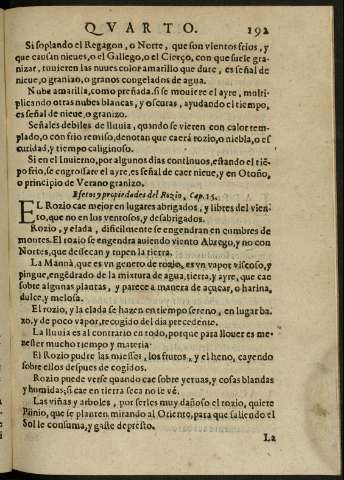 QVARTO. 192
Si soplando el Regagon, o Norte, que son vientos frios, y
que causan nieues, o el Gallego, o el Cierço, con que suele gra-
nizar, tuuieren las nuues color amarillo que dure, es señal de
nieue, o granizo, o granos congelados de agua.
Nube amarilla, como preñada si se mouiere el ayre, multi-
plicando otras nubes blancas, y oscuras, ayudando el tiempo,
es señal de nieue, o granizo.
Señales debiles de lluuia, quando se vieren con calor tem-
plado, o con frio remiso, denotan que caerá rozio, o niebla, o es
curidad, y tiempo caliginoso.
Si en el Inuierno, por algunos dias continuos, estando el tiẽ-
po frio, se engrossare el ayre, es señal de caer nieue, y en Otoño,
o principio de Verano granizo.
Efetos y propiedades del Rozio, Cap. 15.
EL Rozio cae mejor en lugares abrigados, y libres del vien-
to, que no en los ventosos, y desabrigados.
Rozio, y elada, dificilmente se engendran en cumbres de
montes. El rozio se engendra auiendo viento Abrego, y no con
Nortes, que dessecan y tupen la tierra.
La Manná, que es vn genero de rozio, es vn vapor viscoso, y
pingue, engẽdrado de la mixtura de agua, tierra, y ayre, que cae
sobre algunas plantas, y parece a manera de açucar, o harina,
dulce, y melosa.
El rozio, y la elada se hazen en tiempo sereno, en lugar ba-
xo, y de poco vapor, recogido del dia precedente.
La lluuia es al contrario en todo, porque para llouer es me-
nester mucho tiempo y materia
El Rozio pudre las miesses, los frutos, y el heno, cayendo
sobre ellos despues de cogidos.
Rozio puede verse quando cae sobre yeruas, y cosas blandas
y humidas; si cae en tierra seca no se vé.
Las viñas y arboles, por serles muy dañoso el rozio, quiere
Plinio, que se planten mirando al Oriente, para que saliendo el
Sol le consuma, y gaste depresto.
La